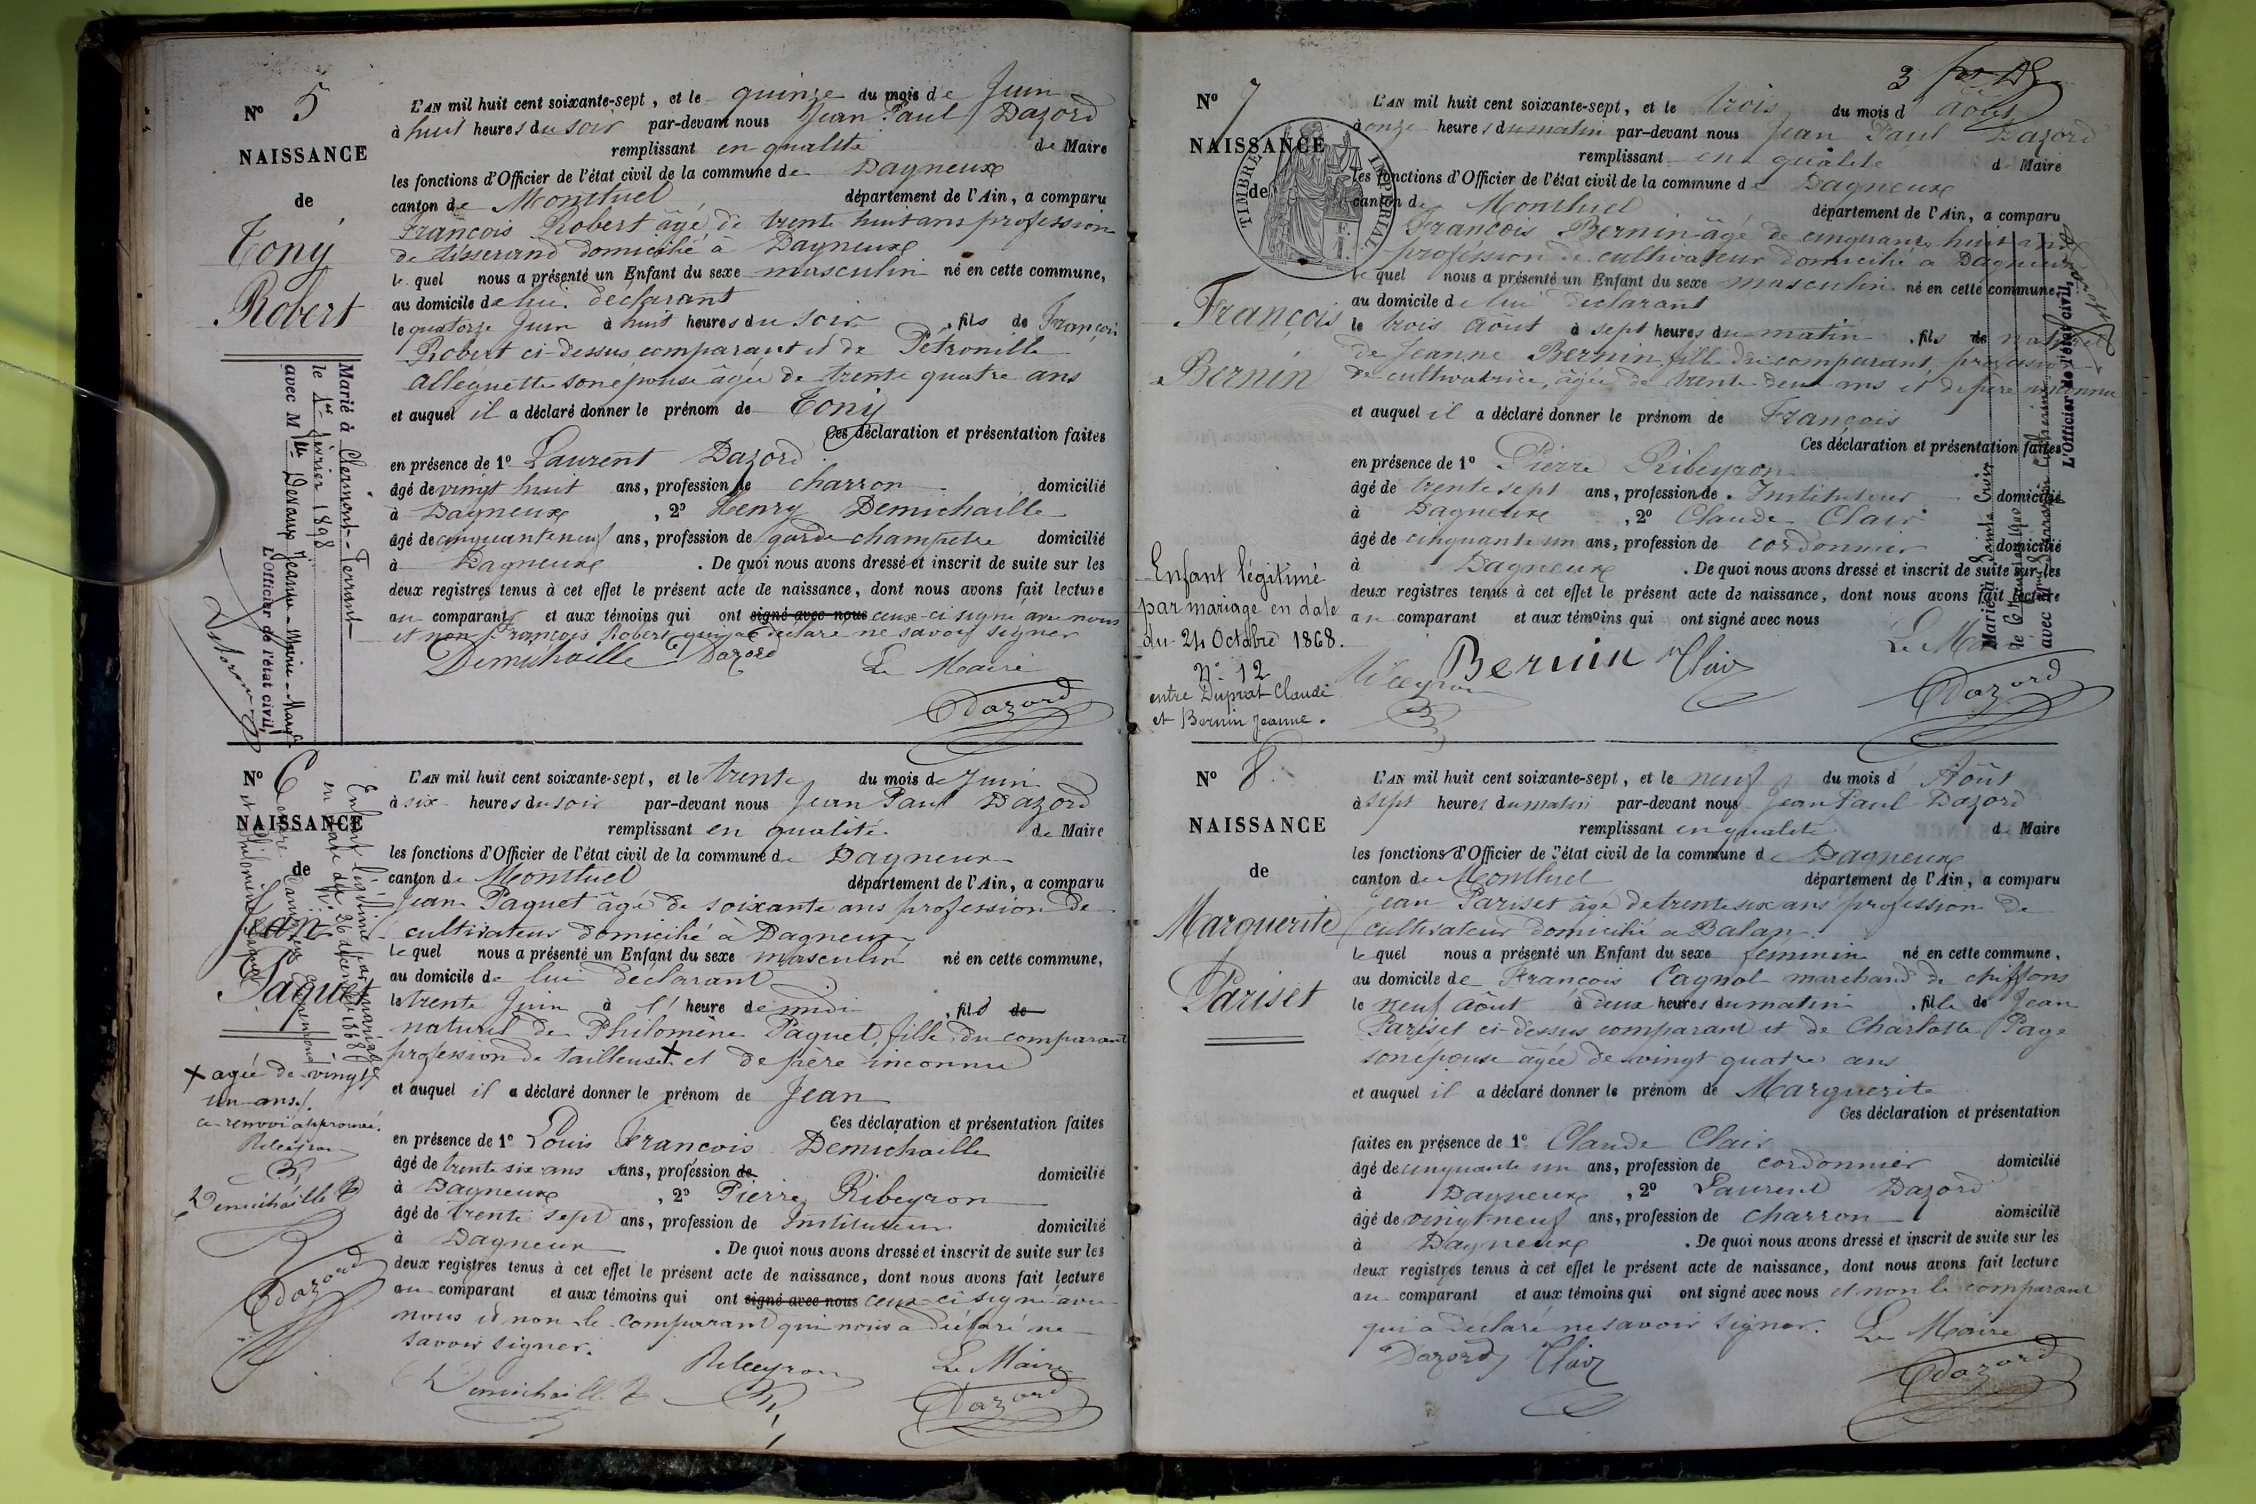 N° 5
NAISSANCE
de
Tony
Robert
L'AN mil huit cent soixante-sept, et le quinze du mois de Juin
à huit heures du soir par-devant nous Jean Paul Dazord
remplissant en qualité de Maire
les fonctions d'Officier de l'état civil de la commune de Dagneux
canton de Montluel département de l'Ain, a comparu
François Robert âgé de trente huit ans profession
de tisserand domicilié à Dagneux
le quel nous a présenté un Enfant du sexe masculin né en cette commune,
au domicile de lui déclarant
le quatorze Juin à huit heures du soir, fils de François
Robert ci-dessus comparant et de Pétronille
Alleguette son épouse âgée de trente quatre ans
et auquel il a déclaré donner le prénom de Tony
Ces déclaration et présentation faites
en présence de 1° Laurent Dazord
âgé de vingt huit ans, profession de charron domicilié
à Dagneux, 2° Henry Demichaille
âgé de cinquante neuf ans, profession de garde champetre domicilié
à Dagneux. De quoi nous avons dressé et inscrit de suite sur les
deux registres tenus à cet effet le présent acte de naissance, dont nous avons fait lecture
au comparant et aux témoins qui ont signé avec nous ceux-ci signé avec nous
et non François Robert qui a déclaré ne savoir signer
Demichaille Dazord Le Maire
Dazord
Marié à Clermont-Ferrand
le 1er février 1898
avec Mlle Devaux Jeanne-Marie-Margte
L'officier de l'état civil,
N° 6
NAISSANCE
de
Jean
Paquet
Enfant légitimé par mariage
en date du 26 décembre 1868
N°
entre
et Philomène Paquet
L'AN mil huit cent soixante-sept, et le trente du mois de Juin
à six heures du soir par-devant nous Jean Paul Dazord
remplissant en qualité de Maire
les fonctions d'Officier de l'état civil de la commune de Dagneux
canton de Montluel département de l'Ain, a comparu
Jean Paquet âgé de soixante ans profession de
cultivateur domicilié à Dagneux
le quel nous a présenté un Enfant du sexe masculin né en cette commune,
au domicile de lui déclarant
le trente Juin à l'heure de midi, fils de
naturel de Philomène Paquet, fille du comparant
profession de tailleuse X et de père inconnu
et auquel il a déclaré donner le prénom de Jean
Ces déclaration et présentation faites
en présence de 1° Louis François Demichaille
âgé de trente six ans ans, profession de domicilié
à Dagneux, 2° Pierre Ribeyron
âgé de trente sept ans, profession de Instituteur domicilié
à Dagneux. De quoi nous avons dressé et inscrit de suite sur les
deux registres tenus à cet effet le présent acte de naissance, dont nous avons fait lecture
au comparant et aux témoins qui ont signé avec nous ceux-ci signé avec
nous et non le comparant qui nous a déclaré ne
savoir signer.
Ribeyron Le Maire
Demichaille Dazord
X agée de vingt
un ans.
ce renvoi approuvé.
Ribeyron
Demichaille
Dazord
3
N° 7
NAISSANCE
de
TIMBRE IMPERIAL
François
Bernin
L'AN mil huit cent soixante-sept, et le trois du mois d'Août
à onze heures du matin par-devant nous Jean Paul Dazord
remplissant en qualité d Maire
les fonctions d'Officier de l'état civil de la commune de Dagneux
canton de Montluel département de l'Ain, a comparu
François Bernin âgé de cinquante huit ans
profession de cultivateur domicilié à Dagneux
le quel nous a présenté un Enfant du sexe masculin né en cette commune,
au domicile de lui déclarant
le trois Août à sept heures du matin, fils de naturel
de Jeanne Bernin, fille du comparant, profession
de cultivatrice, âgée de trente deux ans et de père inconnu
et auquel il a déclaré donner le prénom de François
Ces déclaration et présentation faites
en présence de 1° Pierre Ribeyron
âgé de trente sept ans, profession de Instituteur domicilié
à Dagneux, 2° Claude Clair
âgé de cinquante un ans, profession de cordonnier domicilié
à Dagneux. De quoi nous avons dressé et inscrit de suite sur les
deux registres tenus à cet effet le présent acte de naissance, dont nous avons fait lecture
au comparant et aux témoins qui ont signé avec nous
Le Maire
Ribeyron Bernin Clair
Dazord
Enfant légitimé
par mariage en date
du 24 Octobre 1868.
N° 12
entre Duprat Claude
et Bernin Jeanne.
Marié à Sainte Croix
le
avec M
L'Officier de l'état civil,
N° 8
NAISSANCE
de
Marguerite
Pariset
L'AN mil huit cent soixante-sept, et le neuf du mois d'Août
à sept heures du matin par-devant nous Jean Paul Dazord
remplissant en qualité de Maire
les fonctions d'Officier de l'état civil de la commune de Dagneux
canton de Montluel département de l'Ain, a comparu
Jean Pariset âgé de trente six ans profession de
cultivateur domicilié à Balan
le quel nous a présenté un Enfant du sexe féminin né en cette commune,
au domicile de François Cagnol marchand de chiffons
le neuf Août à deux heures du matin, fille de Jean
Pariset ci-dessus comparant et de Charlotte Page
son épouse âgée de vingt quatre ans
et auquel il a déclaré donner le prénom de Marguerite
Ces déclaration et présentation
faites en présence de 1° Claude Clair
âgé de cinquante un ans, profession de cordonnier domicilié
à Dagneux, 2° Laurent Dazord
âgé de vingt neuf ans, profession de charron domicilié
à Dagneux. De quoi nous avons dressé et inscrit de suite sur les
deux registres tenus à cet effet le présent acte de naissance, dont nous avons fait lecture
au comparant et aux témoins qui ont signé avec nous et non le comparant
qui a déclaré ne savoir signer. Le Maire
Dazord Clair
Dazord